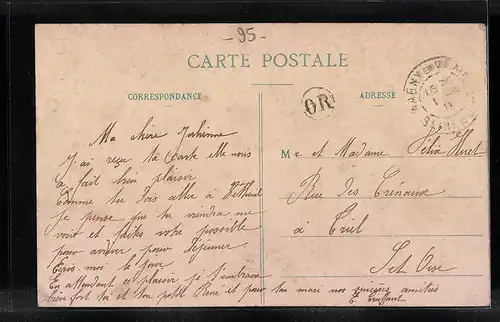 - 95 -
CARTE POSTALE
CORRESPONDANCE
OR
ADRESSE
MAGNY EN VEXIN
Ma chère
J'ai reçu ta Carte elle nous
a fait bien plaisir
Comme tu dois aller à Vétheuil
je pense que tu viendra me
voir et faites votre possible
pour arriver pour Déjeuner.
moi le jour
En attendant ce plaisir je t'embrasse
bien fort toi et ton petit René et pour ton mari nos sincères amitiés
E.
Mr. et Madame Félix Huet
Rue des Créneaux
à Triel
Set Oise